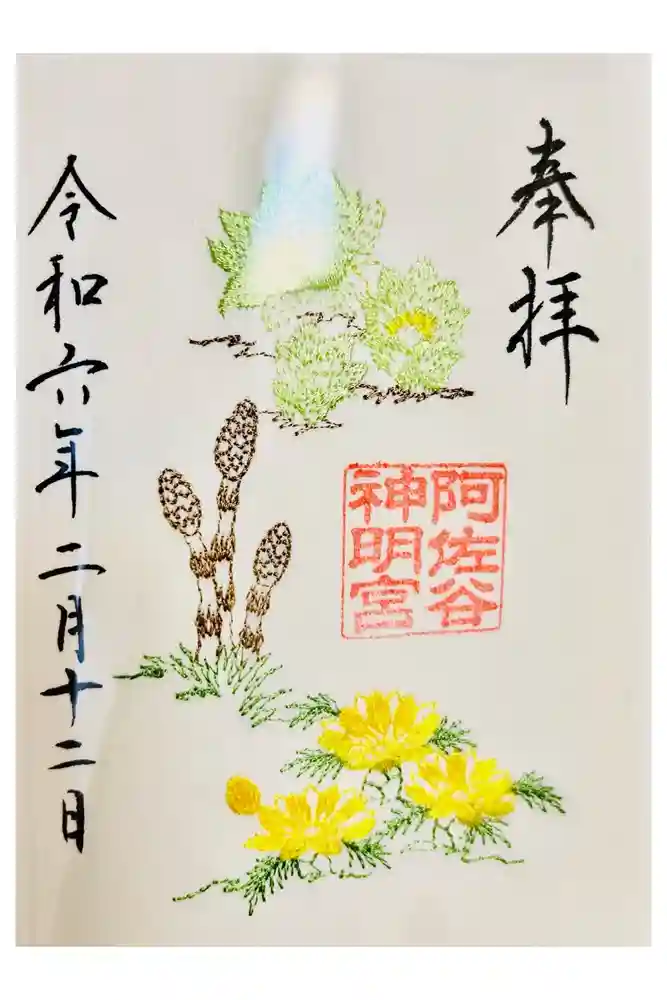 奉拝
阿佐谷
神明宮
令和六年二月十二日